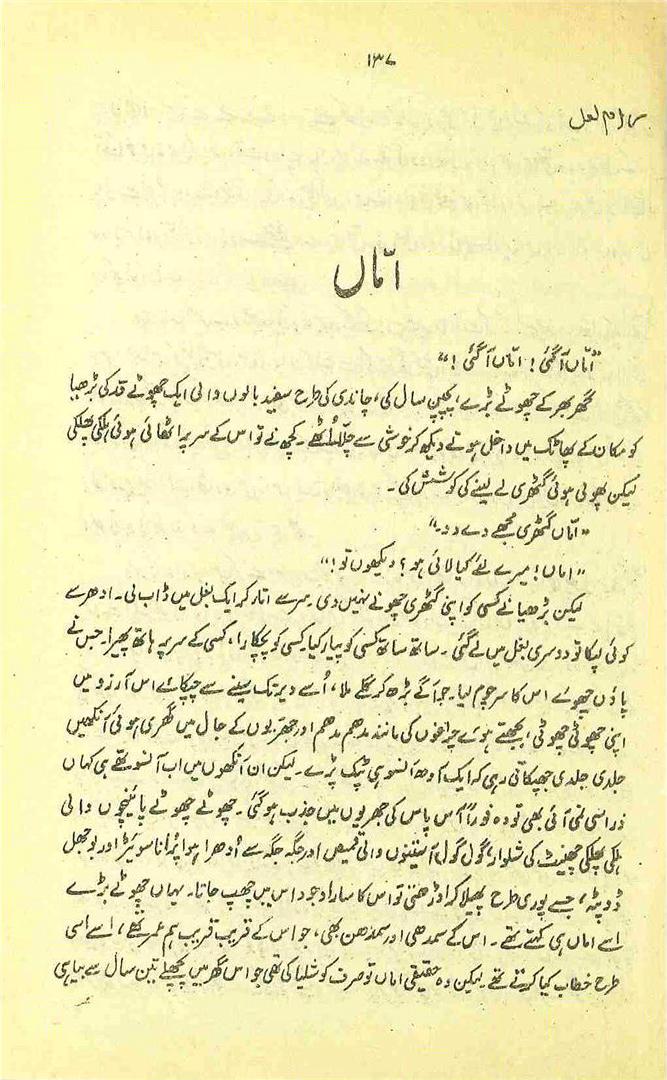 ۱۳۷
رام لعل
امّاں
"امّاں آگئی! امّاں آگئی!"
گھر بھر کے چھوٹے بڑے، پچپن سال کی، چاندی کی طرح سفید بالوں والی ایک چھوٹے قد کی بڑھیا
کو مکان کے پھاٹک میں داخل ہوتے دیکھ کر خوشی سے چلّا اُٹھے۔ کچھ نے تو اس کے سر پر اٹھائی ہوئی ہلکی پھلکی
لیکن پھولی ہوئی گٹھری لے لینے کی کوشش کی۔
"امّاں گٹھری مجھے دے دو۔"
"اماں! میرے لئے کیا لائی ہو؟ دیکھوں تو!"
لیکن بڑھیا نے کسی کو اپنی گٹھری چھونے نہیں دی۔ سر سے اتار کر ایک بغل میں ڈاب لی۔ ادھر سے
کوئی لپکا تو دوسری بغل میں لے گئی۔ ساتھ ساتھ کسی کو پیار کیا، کسی کو پچکارا، کسی کے سر پر ہاتھ پھیرا۔ جس نے
پاؤں چھوئے اس کا سر چوم لیا۔ جو آگے بڑھ کر گلے ملا، اُسے دیر تک سینے سے چپکائے اس آرزو میں
اپنی چھوٹی چھوٹی، بجھتے ہوئے چراغوں کی مانند مدھم مدھم اور جھریوں کے جال میں گھری ہوئی آنکھیں
جلدی جلدی جھپکاتی رہی کہ ایک آدھ آنسو ہی ٹپک پڑے۔ لیکن ان آنکھوں میں اب آنسو تھے ہی کہاں
ذرا سی نمی آئی بھی تو وہ فوراً آس پاس کی جھریوں میں جذب ہو گئی۔ چھوٹے چھوٹے پائینچوں والی
ہلکی پھلکی چھینٹ کی شلوار، گول گول آستینوں والی قمیض اور جگہ جگہ سے اُدھڑا ہوا پُرانا سویٹر اور بوجھل
دُوپٹہ، جسے پوری طرح پھیلا کر اوڑھتی تو اس کا سارا وجود اس میں چھپ جاتا۔ یہاں چھوٹے بڑے
اسے اماں ہی کہتے تھے۔ اس کے سمدھی اور سمدھن بھی، جو اس کے قریب قریب ہم عمر تھے، اسے اسی
طرح خطاب کیا کرتے تھے۔ لیکن وہ حقیقی اماں تو صرف کوشلیا کی تھی جو اس گھر میں پچھلے تین سال سے بیاہی